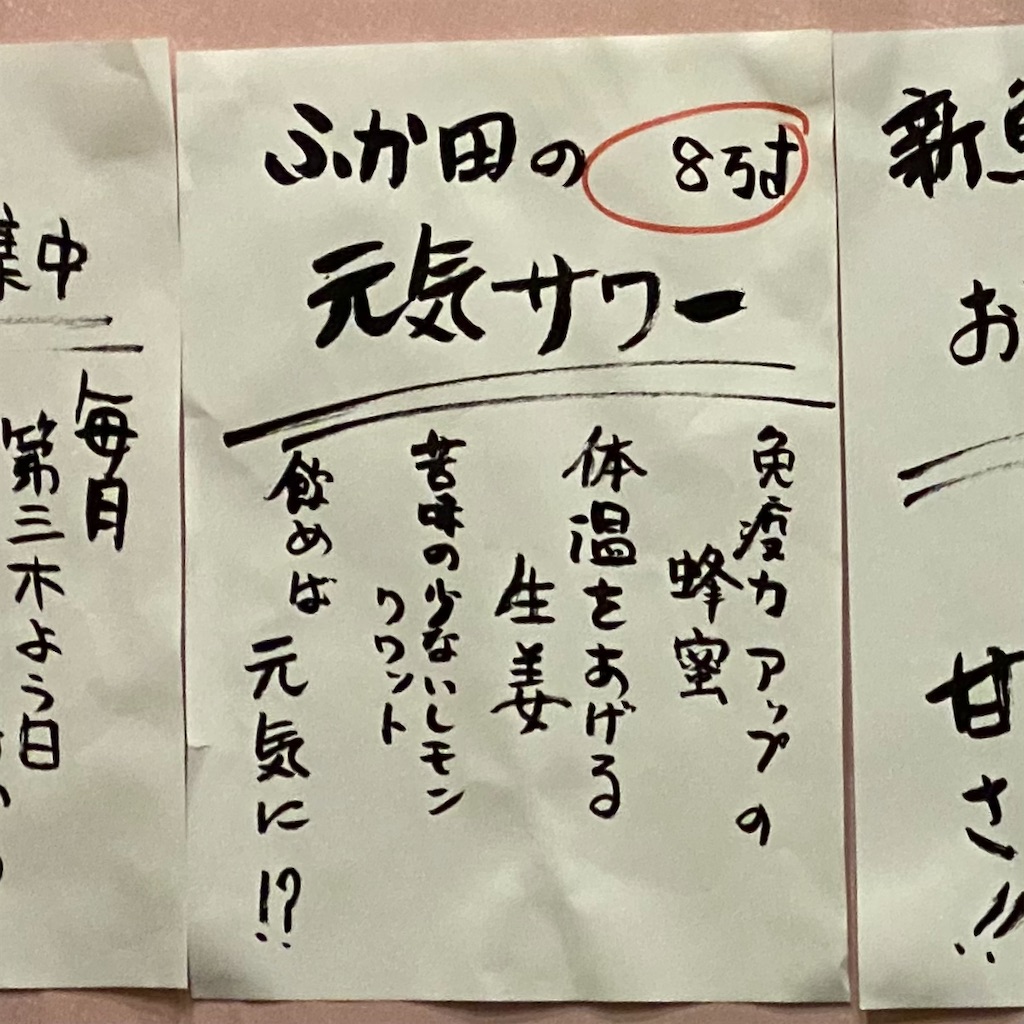 集中
毎月
第三木よう日
ふか田の
元気サワー
免疫力アップの
蜂蜜
体温をあげる
生姜
苦味の少ないレモン
クワント
飲めば元気に!?
新
お
甘さ!!